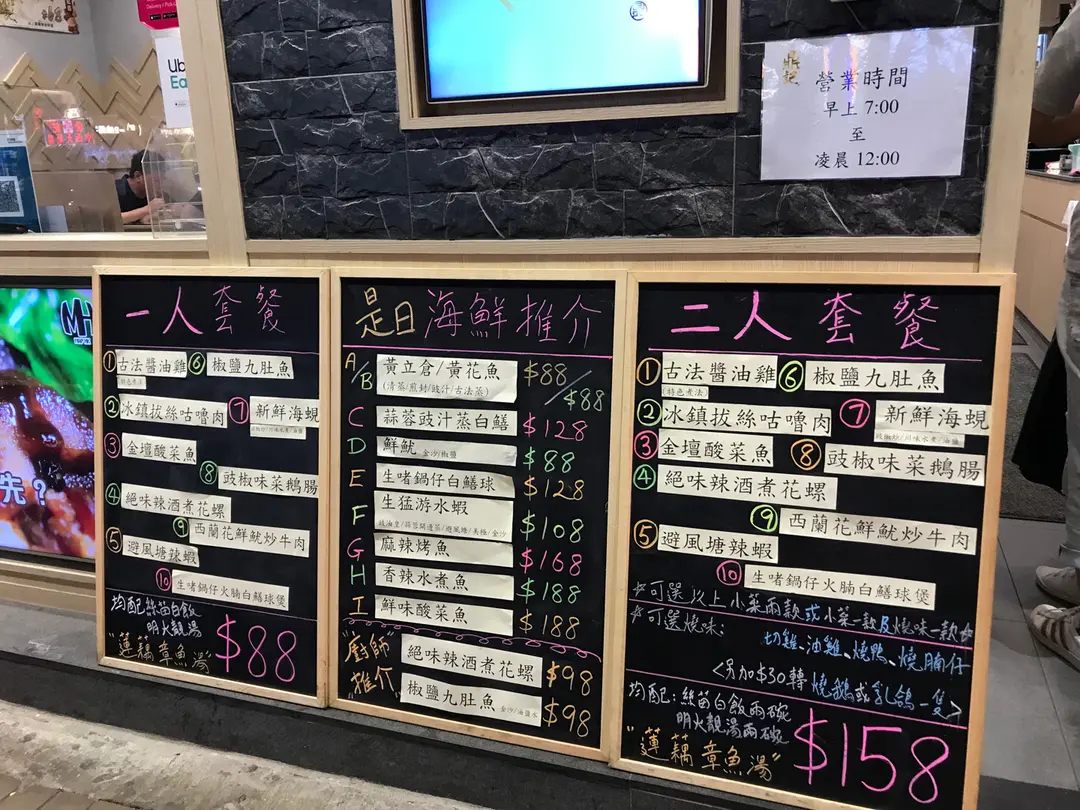 Ub
Ea
鼎記
營業時間
早上 7:00
至
凌晨 12:00
先？
一人套餐
①古法醬油雞
(特色煮法)
⑥椒鹽九肚魚
②冰鎮拔絲咕嚕肉
⑦新鮮海蜆
③金壇酸菜魚
⑧豉椒味菜鵝腸
④絕味辣酒煮花螺
⑨西蘭花鮮魷炒牛肉
⑤避風塘辣蝦
⑩生啫鍋仔火腩白鱔球煲
均配絲苗白飯
明火靚湯
"蓮藕章魚湯"
$88
是日海鮮推介
A/B 黃立倉/黃花魚 $88/$88
(清蒸/煎封/豉汁/古法蒸)
C 蒜蓉豉汁蒸白鱔 $128
D 鮮魷 金沙/椒鹽 $88
E 生啫鍋仔白鱔球 $128
F 生猛游水蝦 $108
豉油皇/蒜蓉開邊蒸/避風塘/美極/金沙
G 麻辣烤魚 $168
H 香辣水煮魚 $188
I 鮮味酸菜魚 $188
"廚師推介"
絕味辣酒煮花螺 $98
椒鹽九肚魚 金沙/油鹽水 $98
二人套餐
①古法醬油雞
(特色煮法)
⑥椒鹽九肚魚
②冰鎮拔絲咕嚕肉
⑦新鮮海蜆
豉椒炒/川味水煮/油鹽
③金壇酸菜魚
⑧豉椒味菜鵝腸
④絕味辣酒煮花螺
⑨西蘭花鮮魷炒牛肉
⑤避風塘辣蝦
⑩生啫鍋仔火腩白鱔球煲
*可選以上小菜兩款或小菜一款及燒味一款*
*可選燒味:
切雞、油雞、燒鴨、燒腩仔
<另加$30轉燒鵝或乳鴿一隻>
均配:絲苗白飯兩碗
明火靚湯兩碗
"蓮藕章魚湯"
$158